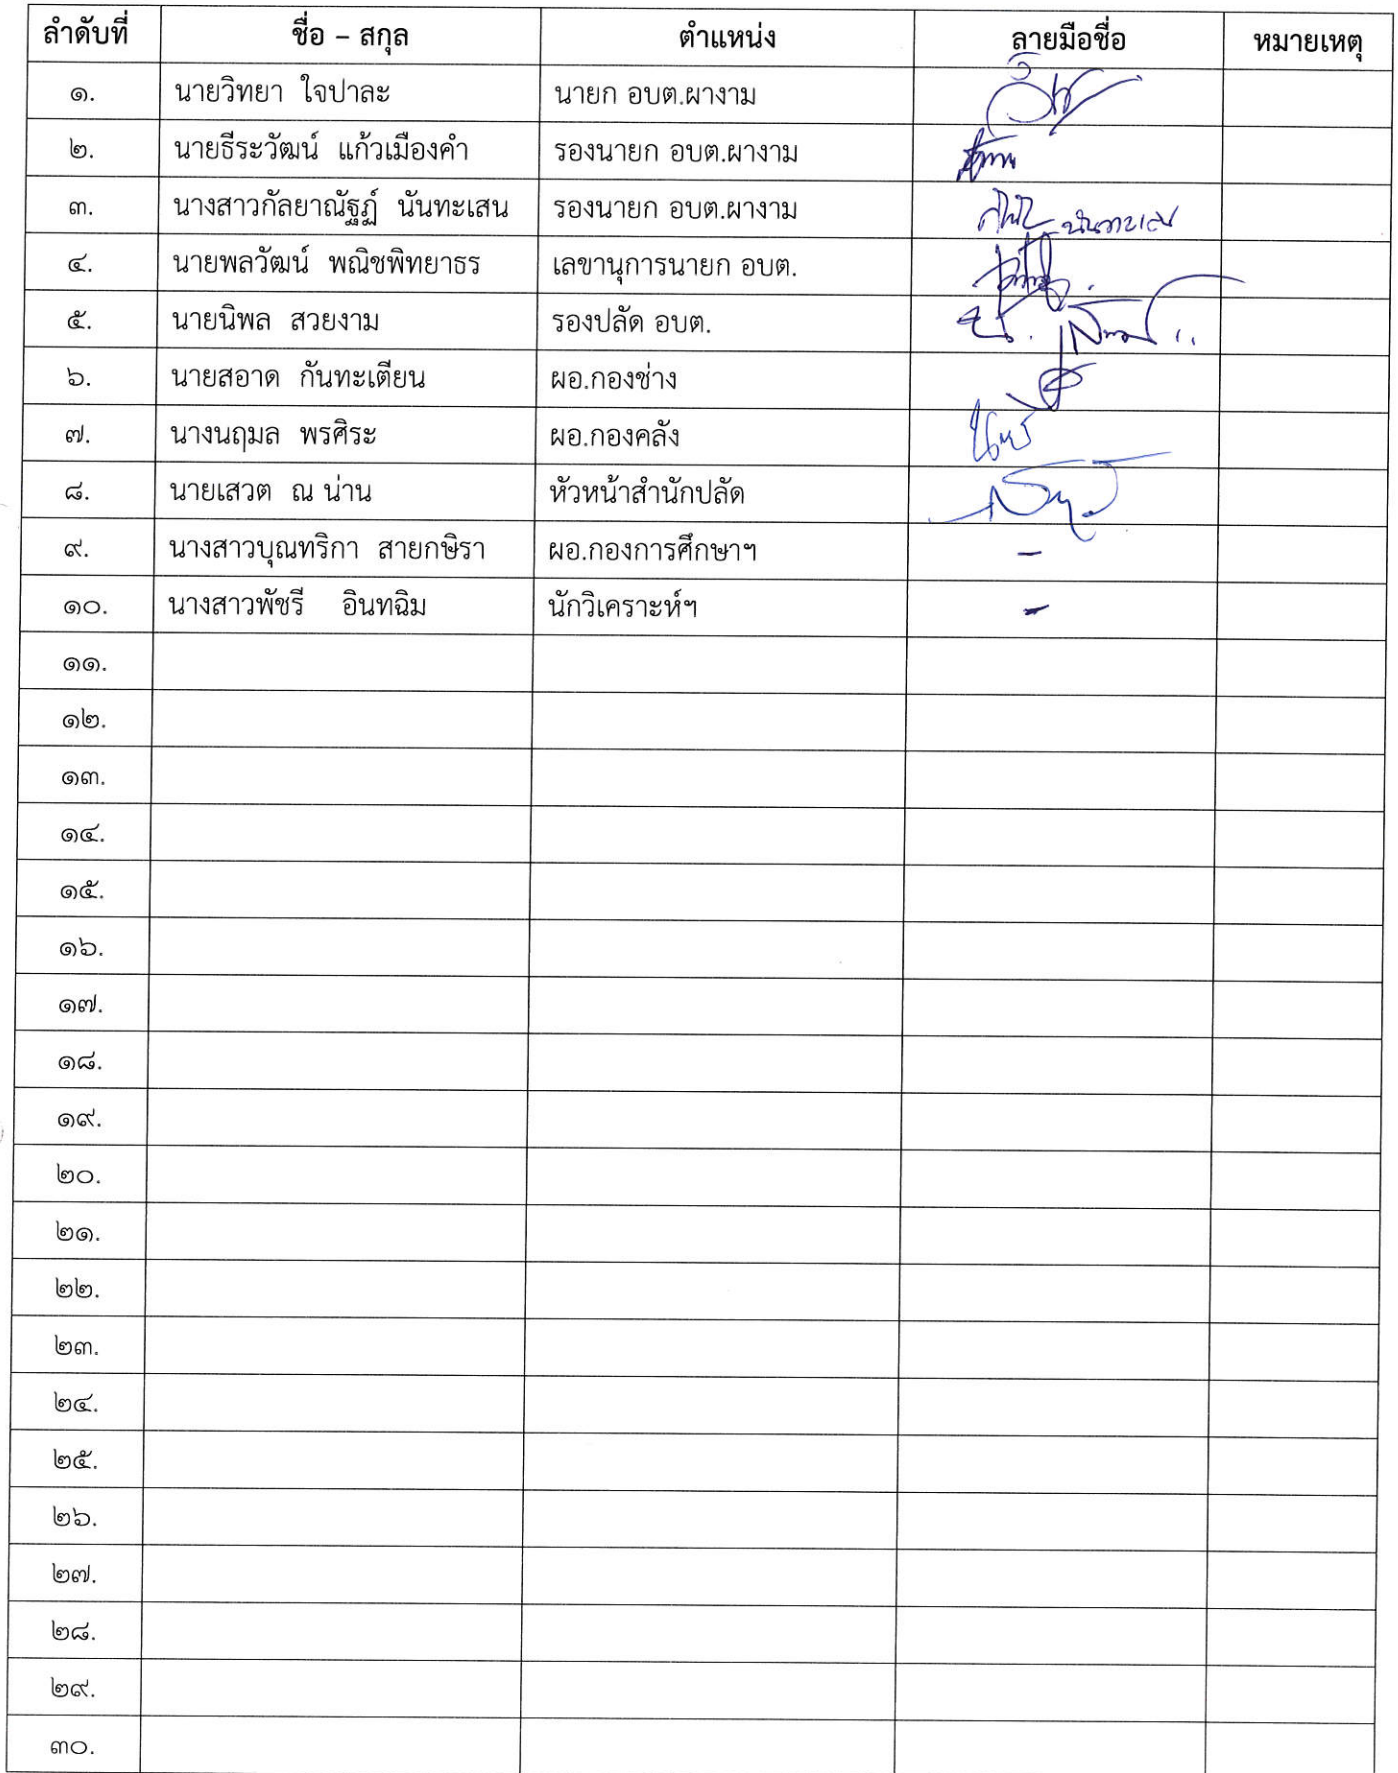 ลำดับที่ ชื่อ – สกุล ตำแหน่ง ลายมือชื่อ หมายเหตุ
๑. นายวิทยา ใจปาละ นายก อบต.ผางาม
๒. นายธีระวัฒน์ แก้วเมืองคำ รองนายก อบต.ผางาม
๓. นางสาวกัลยาณัฐฏ์ นันทะเสน รองนายก อบต.ผางาม
๔. นายพลวัฒน์ พณิชพิทยาธร เลขานุการนายก อบต.
๕. นายนิพล สวยงาม รองปลัด อบต.
๖. นายสอาด กันทะเตียน ผอ.กองช่าง
๗. นางนฤมล พรศิระ ผอ.กองคลัง
๘. นายเสวต ณ น่าน หัวหน้าสำนักปลัด
๙. นางสาวบุณทริกา สายกษิรา ผอ.กองการศึกษาฯ –
๑๐. นางสาวพัชรี อินทฉิม นักวิเคราะห์ฯ –
๑๑.
๑๒.
๑๓.
๑๔.
๑๕.
๑๖.
๑๗.
๑๘.
๑๙.
๒๐.
๒๑.
๒๒.
๒๓.
๒๔.
๒๕.
๒๖.
๒๗.
๒๘.
๒๙.
๓๐.